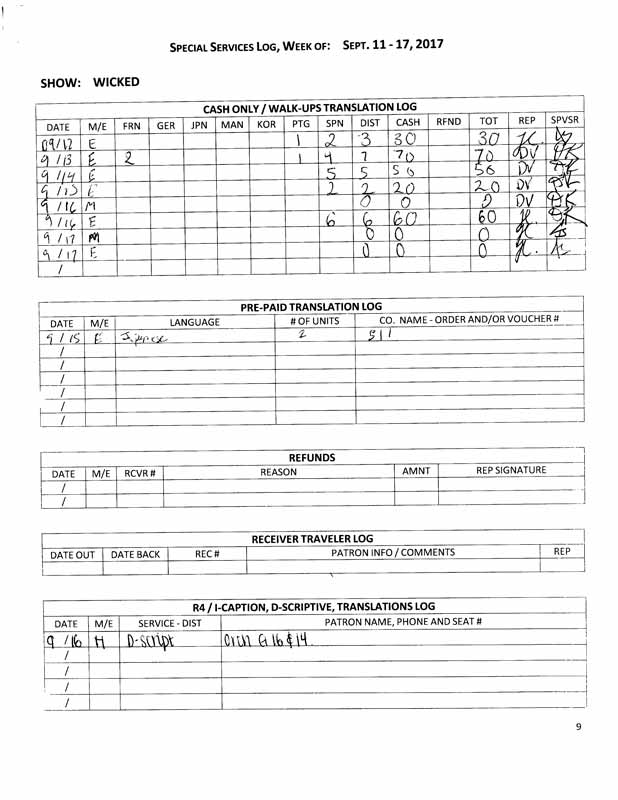 SPECIAL SERVICES LOG, WEEK OF: SEPT. 11 - 17, 2017
SHOW: WICKED
CASH ONLY / WALK-UPS TRANSLATION LOG
DATE M/E FRN GER JPN MAN KOR PTG SPN DIST CASH RFND TOT REP SPVSR
09/12 E 1 2 3 30 30
9/13 E 2 1 4 7 70 70 DV
9/14 E 5 5 50 DV
9/15 E 2 2 20 20 DV
9/16 M 0 0 0 DV
9/16 E 6 6 60 60
9/17 M 0 0 0
9/17 E 0 0 0
/
PRE-PAID TRANSLATION LOG
DATE M/E LANGUAGE # OF UNITS CO. NAME - ORDER AND/OR VOUCHER #
9/15 E 2
/
/
/
/
/
/
REFUNDS
DATE M/E RCVR # REASON AMNT REP SIGNATURE
/
/
RECEIVER TRAVELER LOG
DATE OUT DATE BACK REC # PATRON INFO / COMMENTS REP
R4 / I-CAPTION, D-SCRIPTIVE, TRANSLATIONS LOG
DATE M/E SERVICE - DIST PATRON NAME, PHONE AND SEAT #
9/16 D-script 16 & 14
/
/
/
/
9